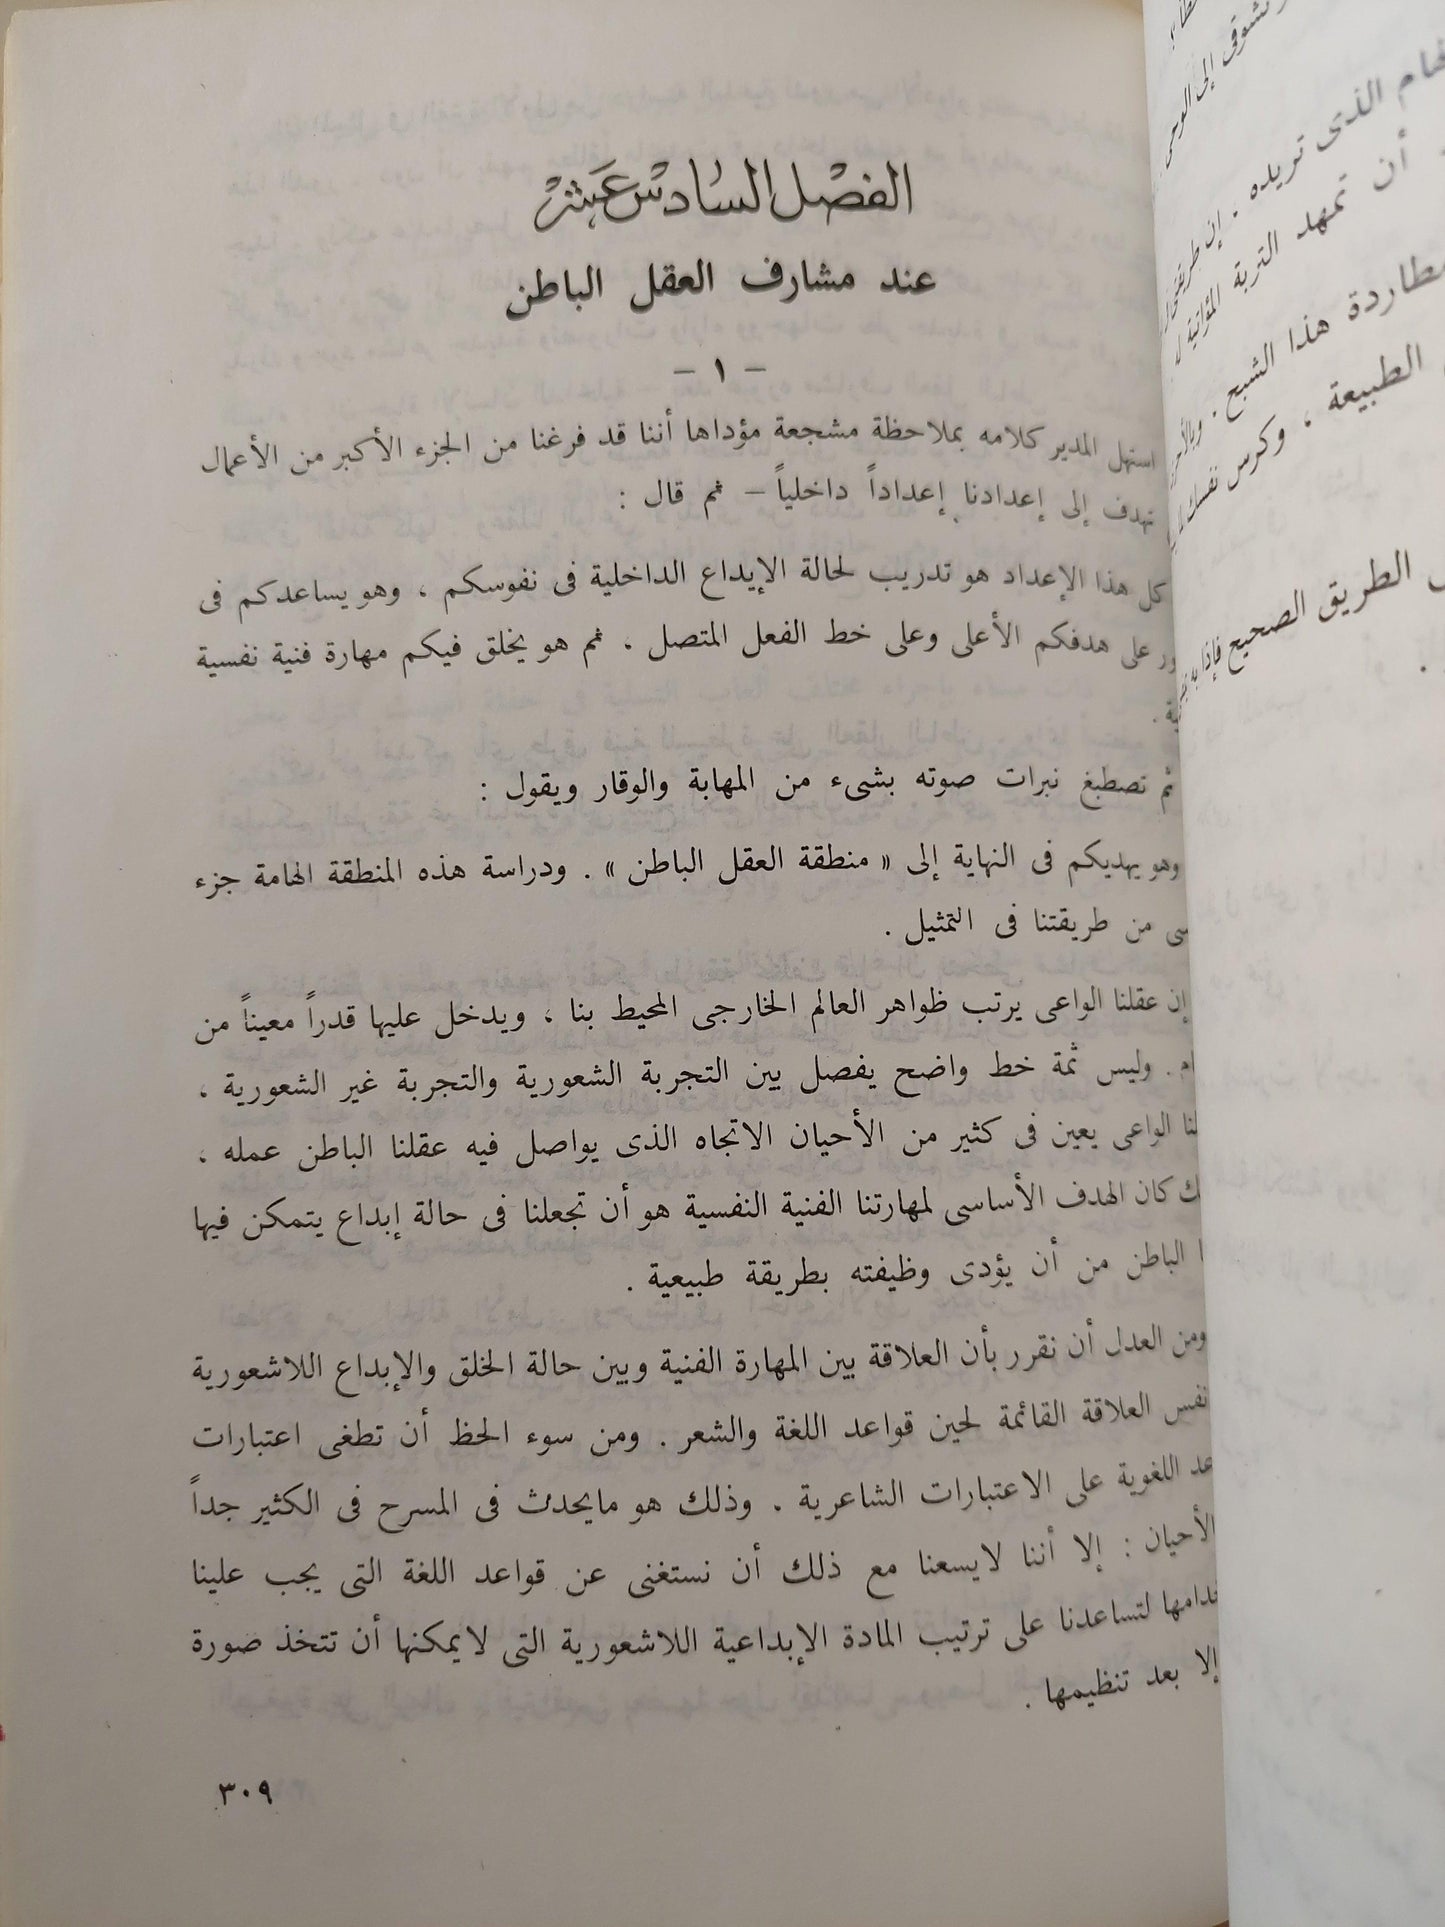 الفصل السادس عشر
عند مشارف العقل الباطن
– ١ –
استهل المدير كلامه بملاحظة مشجعة مؤداها أننا قد فرغنا من الجزء الأكبر من الأعمال
تهدف إلى إعدادنا إعداداً داخلياً – ثم قال :
كل هذا الإعداد هو تدريب لحالة الإيداع الداخلية فى نفوسكم ، وهو يساعدكم فى
ور على هدفكم الأعلى وعلى خط الفعل المتصل ، ثم هو يخلق فيكم مهارة فنية نفسية
ية .
ثم تصطبغ نبرات صوته بشىء من المهابة والوقار ويقول :
وهو يهديكم فى النهاية إلى « منطقة العقل الباطن » . ودراسة هذه المنطقة الهامة جزء
سى من طريقتنا فى التمثيل .
إن عقلنا الواعى يرتب ظواهر العالم الخارجى المحيط بنا ، ويدخل عليها قدراً معيناً من
ام . وليس ثمة خط واضح يفصل بين التجربة الشعورية والتجربة غير الشعورية ،
لنا الواعى يعين فى كثير من الأحيان الاتجاه الذى يواصل فيه عقلنا الباطن عمله ،
ك كان الهدف الأساسى لمهارتنا الفنية النفسية هو أن تجعلنا فى حالة إبداع يتمكن فيها
ا الباطن من أن يؤدى وظيفته بطريقة طبيعية .
ومن العدل أن نقرر بأن العلاقة بين المهارة الفنية وبين حالة الخلق والإبداع اللاشعورية
نفس العلاقة القائمة لحين قواعد اللغة والشعر . ومن سوء الحظ أن تطغى اعتبارات
عد اللغوية على الاعتبارات الشاعرية . وذلك هو مايحدث فى المسرح فى الكثير جداً
الأحيان : إلا أننا لايسعنا مع ذلك أن نستغنى عن قواعد اللغة التى يجب علينا
دامها لتساعدنا على ترتيب المادة الإبداعية اللاشعورية التى لايمكنها أن تتخذ صورة
إلا بعد تنظيمها .
٣٠٩
تشوقى إلى الوحى
الذى تريده . إن طريقتى
أن تمهد التربة المؤاتية
مطاردة هذا الشبح .
الطبيعة ، وكرس نفسك
الطريق الصحيح فإذا به